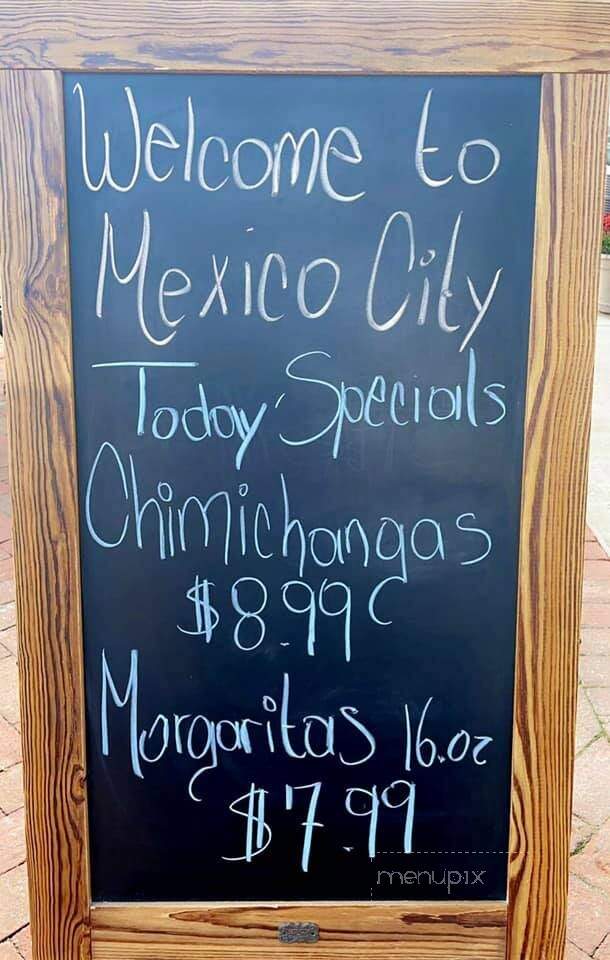 Welcome to
Mexico City
Today' Specials
Chimichangas
$8.99c
Margaritas 16.oz
$7.99
menupix